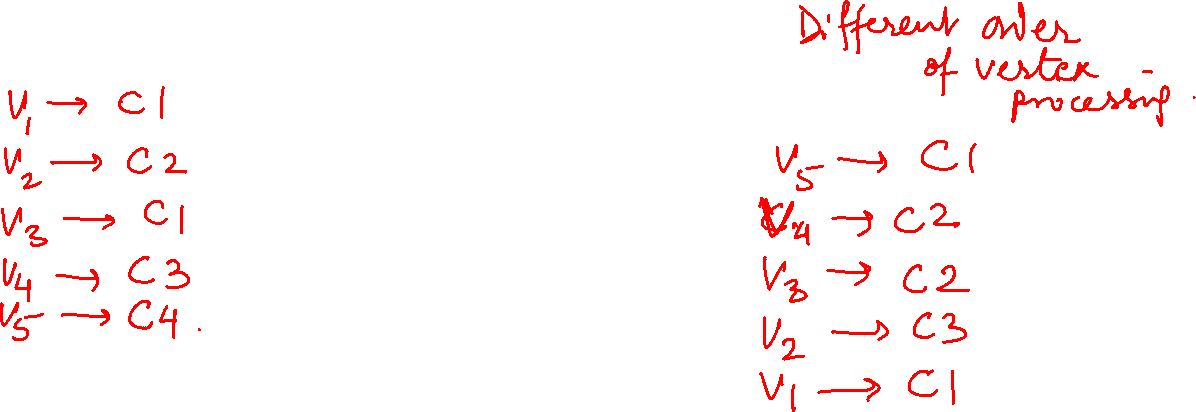 V1 → C1
V2 → C2
V3 → C1
V4 → C3
V5 → C4.
Different order
of vertex
processing.
V5 → C1
V4 → C2
V3 → C2
V2 → C3
V1 → C1